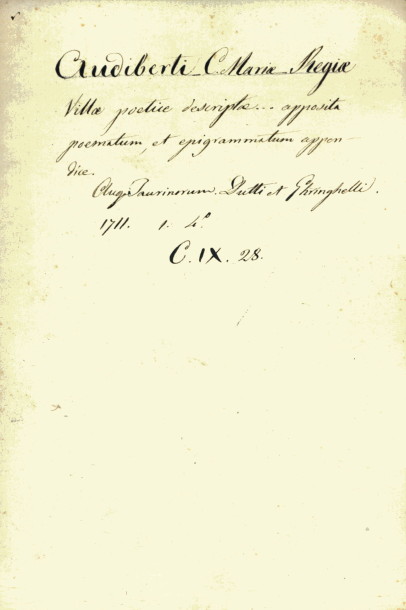 Audiberti C. Mariæ Regiæ
Villæ poetice descriptæ... apposita
poematum, et epigrammatum appen-
dice.
Aug. Taurinorum. Dutti et Ghringhelli.
1711. 1. 4.º
C. IX. 28.